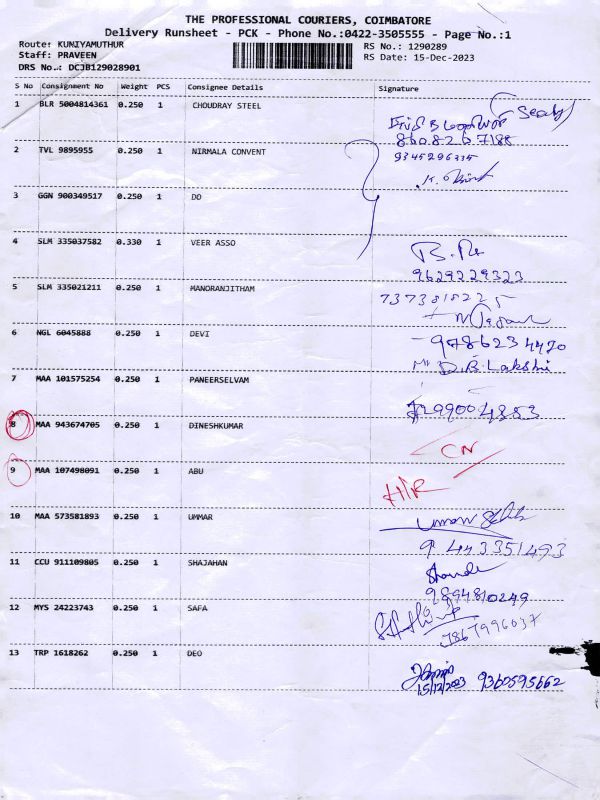 THE PROFESSIONAL COURIERS, COIMBATORE
Delivery Runsheet - PCK - Phone No.:0422-3505555 - Page No.:1
Route: KUNIYAMUTHUR RS No.: 1290289
Staff: PRAVEEN RS Date: 15-Dec-2023
DRS No.: DCJB129028901
S No Consignment No Weight PCS Consignee Details Signature
1 BLR 5004814361 0.250 1 CHOUDRAY STEEL
8608267188
2 TVL 9895955 0.250 1 NIRMALA CONVENT
9345296335
3 GGN 900349517 0.250 1 DD
4 SLM 335037582 0.330 1 VEER ASSO
9629229323
5 SLM 335021211 0.250 1 MANORANJITHAM 7373818225
6 NGL 6045888 0.250 1 DEVI 9786234420
D.B. Lakshi
7 MAA 101575254 0.250 1 PANEERSELVAM
7299004883
8 MAA 943674705 0.250 1 DINESHKUMAR
CN
9 MAA 107498091 0.250 1 ABU
HIR
10 MAA 573581893 0.250 1 UMMAR
9443351493
11 CCU 911109805 0.250 1 SHAJAHAN
9894810249
12 MYS 24223743 0.250 1 SAFA
7867996037
13 TRP 1618262 0.250 1 DEO
15/12/2023 9360595662